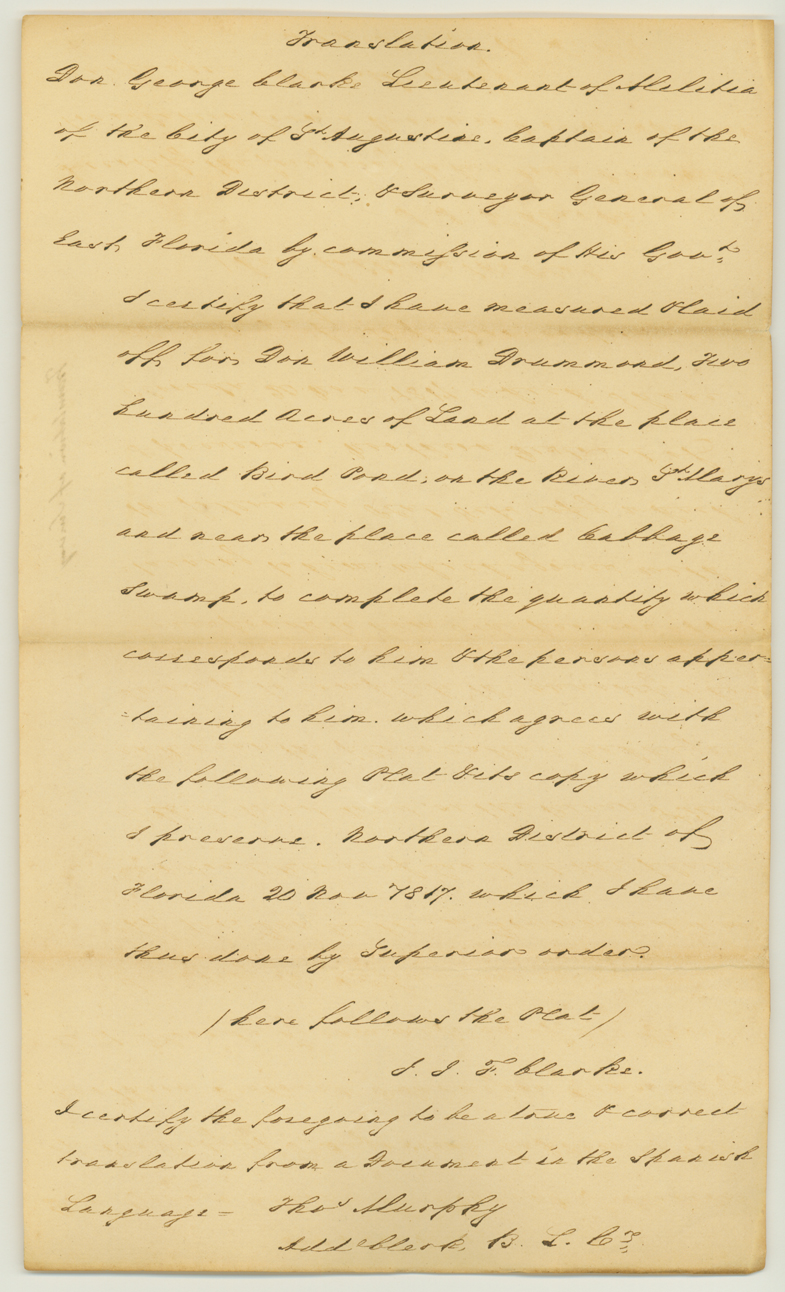 Translation.
Don George Clarke Lieutenant of Militia
of the City of St Augustine, Captain of the
Northern District, & Surveyor General of
East Florida by commission of His Govt.
I certify that I have measured & laid
off for Don William Drummond, Two
hundred Acres of Land at the place
called Bird Pond, on the River St Marys
and near the place called Cabbage
Swamp, to complete the quantity which
corresponds to him & the persons apper=
=taining to him. which agrees with
the following Plat & its copy which
I preserve. Northern District of
Florida 20 Nov 1817. which I have
thus done by Superior order.
/here follows the Plat/
J. J. F. Clarke.
I certify the foregoing to be a true & correct
translation from a Document in the Spanish
Language = Thos Murphy
Add Clerk, B. L. Crs.